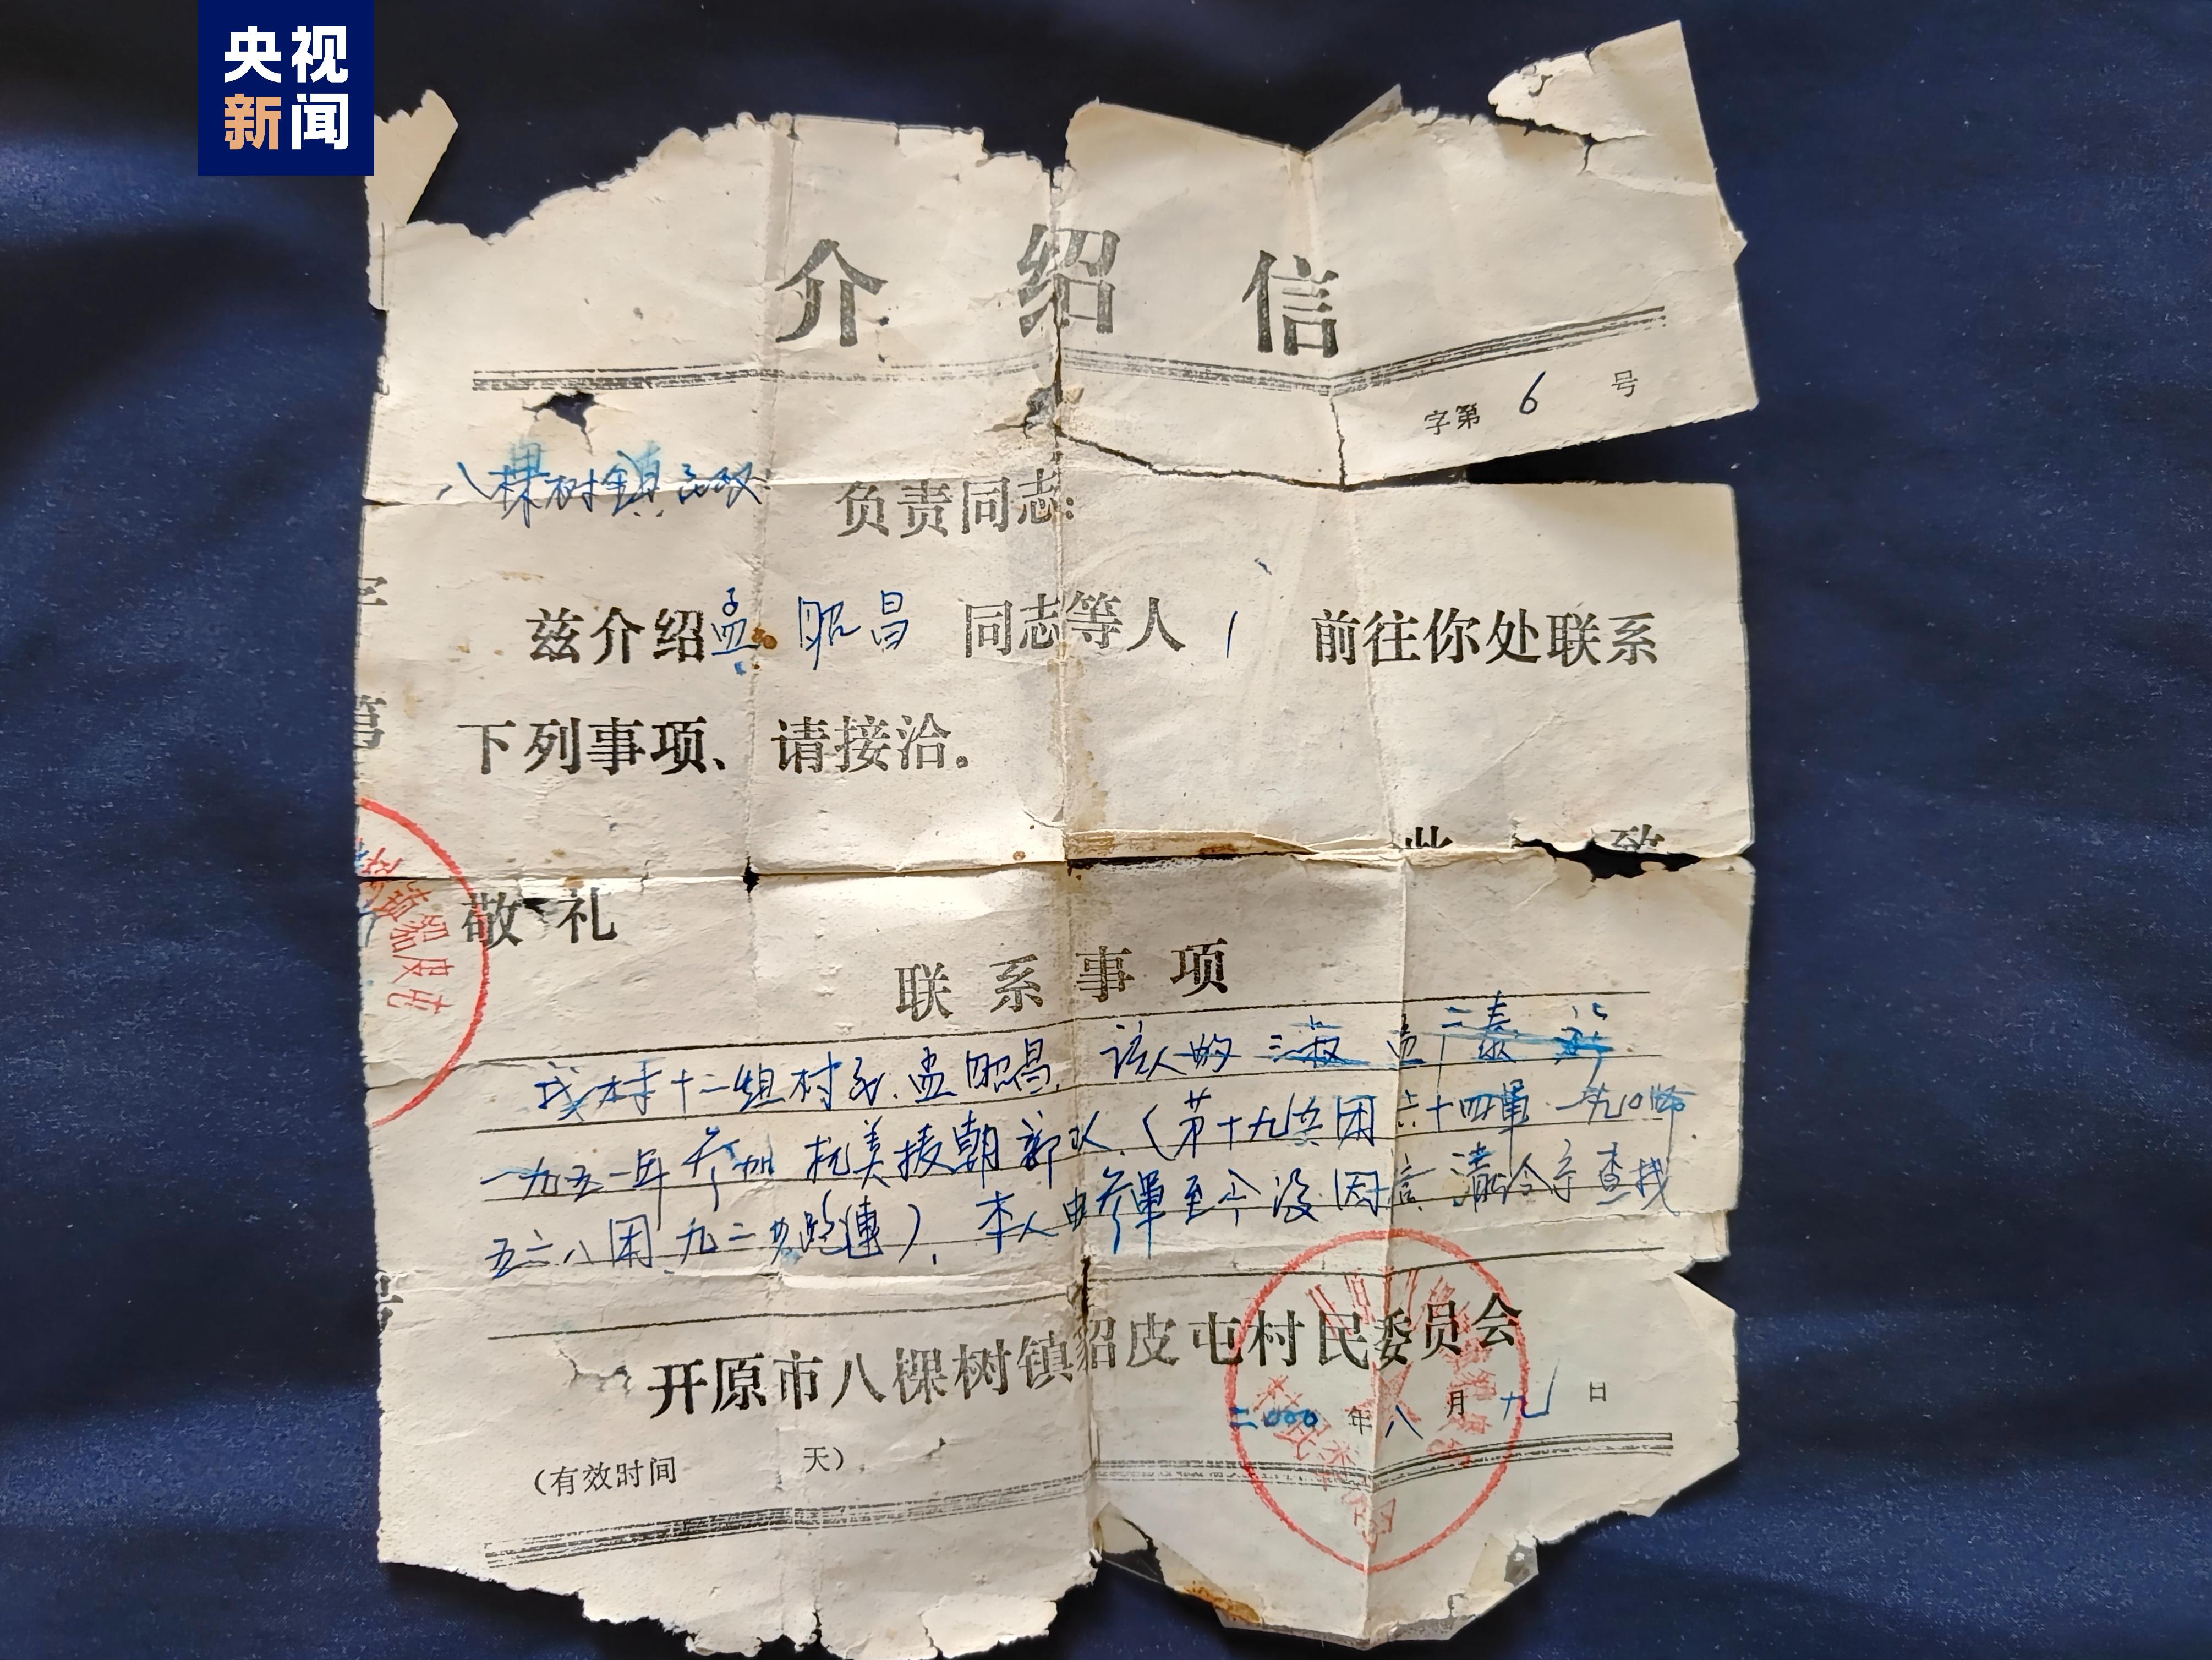 央视
新闻
介绍信
字第 6 号
八棵树镇民政 负责同志:
兹介绍孟昭昌 同志等人 1 前往你处联系
下列事项、请接洽。
此 致
敬礼
联系事项
我村十二组村民孟昭昌,该人的三叔孟二
一九五一年参加抗美援朝部队(第十九兵团六十四軍一九〇师
五六八团九二步炮連),本人由参軍至今没回音 请给予查找
开原市八棵树镇貂皮屯村民委员会
二000年八月十九日
(有效时间 天)
字
第
号
镇貂皮屯